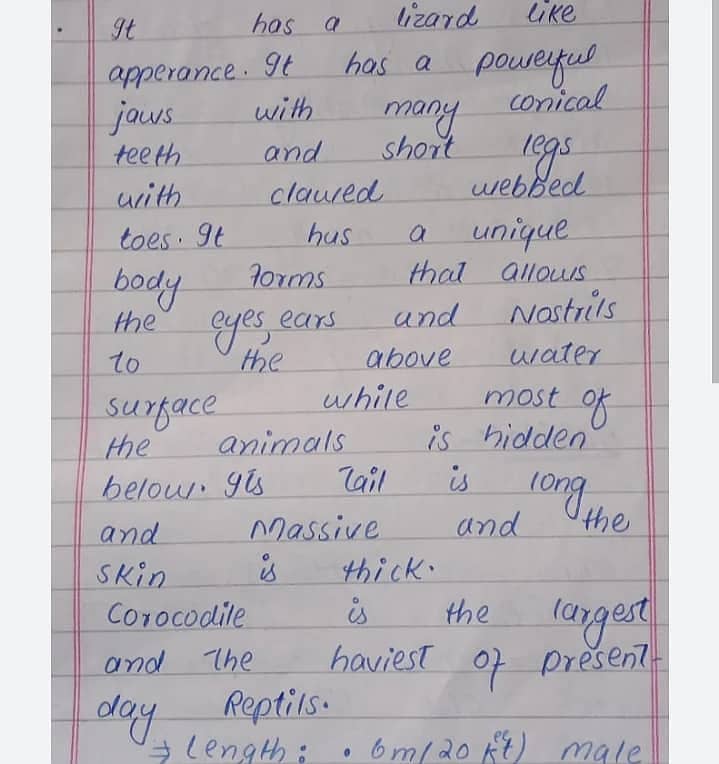 . It has a lizard like
apperance. It has a powerful
jaws with many conical
teeth and short legs
with clawed webbed
toes. It has a unique
body forms that allows
the eyes, ears and Nostrils
to the above water
surface while most of
the animals is hidden
below. Its Tail is long
and Massive and the
skin is thick.
Corocodile is the largest
and The haviest of present-
day Reptils.
→ Length: • 6m/20 ft) male